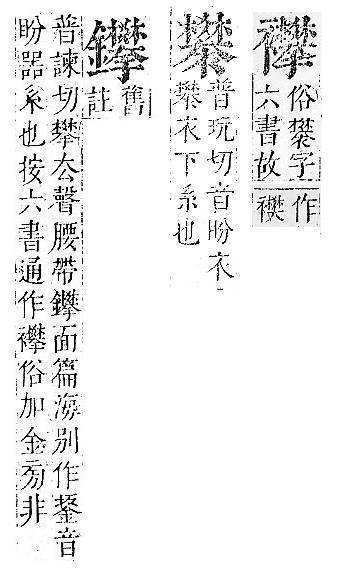 襻
俗字作
六書故
普玩切音盼衣
衣下系也
鑻
舊
註
普諫切攀厺聲腰帶鑻面篇海別作鋬音
盼器系也按六書通作襻俗加金旁非